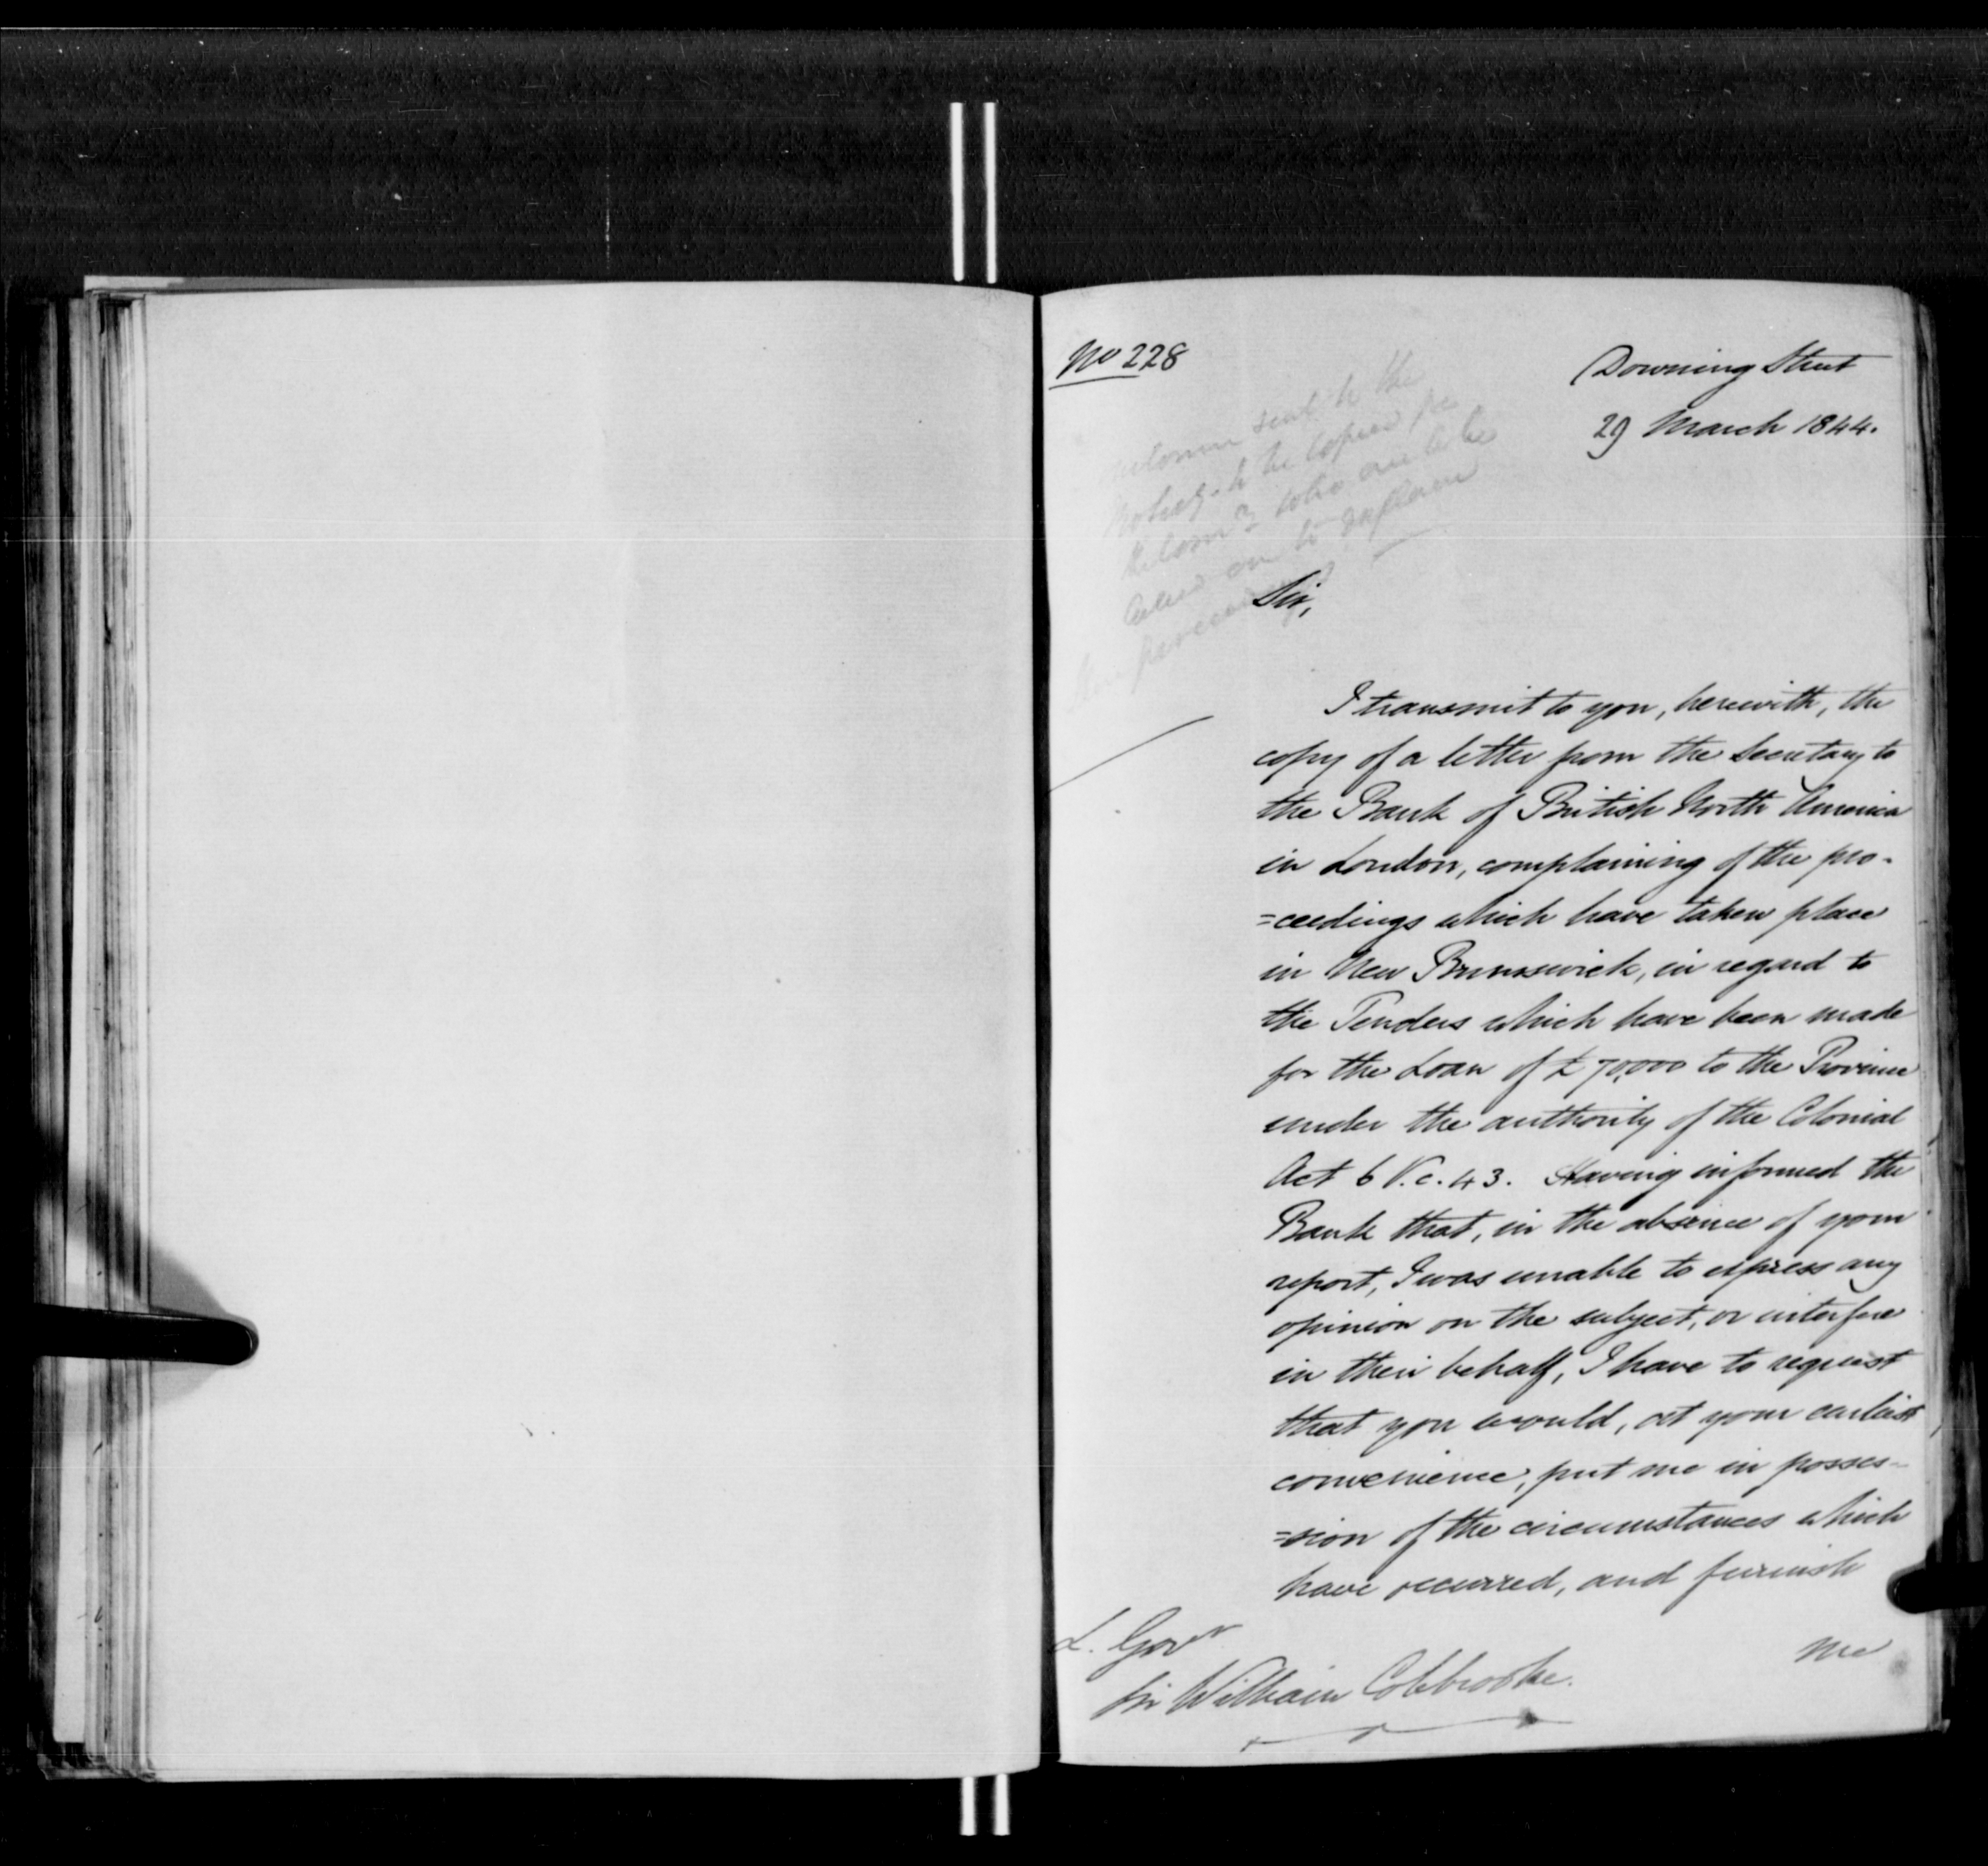 No 228
Downing Street
29 March 1844.
sent to the
to be copied
who are to be
on to explain
Sir,
I transmit to you, herewith, the
copy of a letter from the Secretary to
the Bank of British North America
in London, complaining of the pro-
=ceedings which have taken place
in New Brunswick, in regard to
the Tenders which have been made
for the Loan of £70,000 to the Province
under the authority of the Colonial
Act 6 V. c. 43. Having informed the
Bank that, in the absence of your
report, I was unable to express any
opinion on the subject, or interfere
in their behalf, I have to request
that you would, at your earliest
convenience, put me in posses-
=sion of the circumstances which
have occurred, and furnish
me
L. Govr
Sir William Colebrooke.